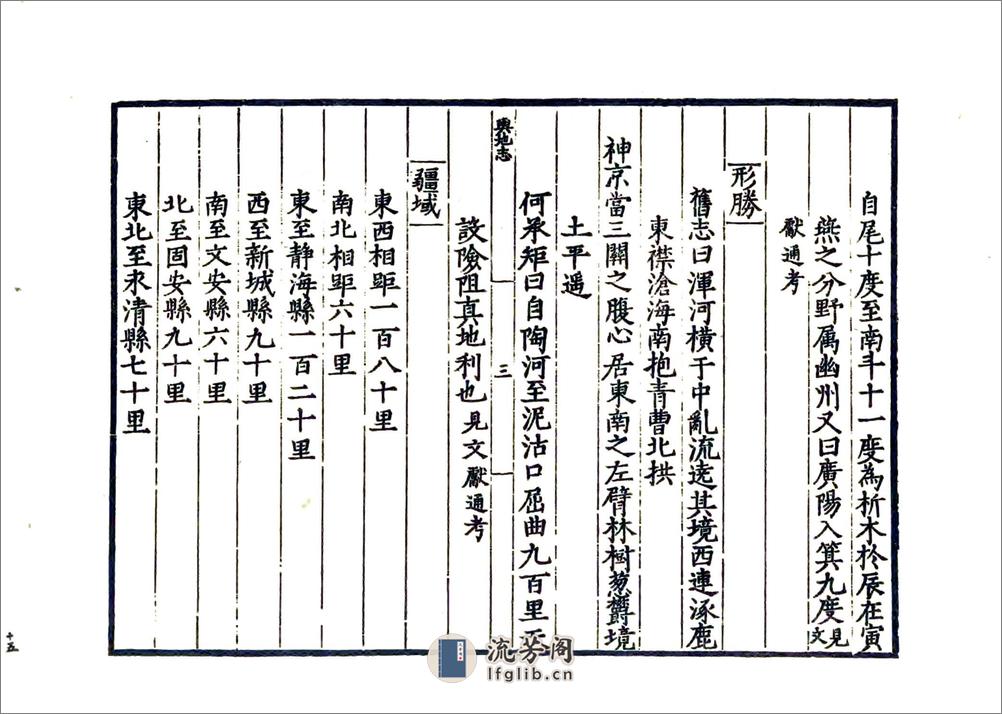 自尾十度至南斗十一度為析木於辰在寅
燕之分野属幽州又曰廣陽入箕九度見文
獻通考
形勝
舊志曰渾河橫于中亂流遶其境西連涿鹿
東襟滄海南抱青曹北拱
神京當三關之腹心居東南之左臂林樹葱欝境
土平遥
何承矩曰自陶河至泥沽口屈曲九百里
輿地志
三
設險阻真地利也見文獻通考
疆域
東西相距一百八十里
南北相距六十里
東至静海縣一百二十里
西至新城縣九十里
南至文安縣六十里
北至固安縣九十里
東北至永清縣七十里
十五
流芳阁
lfglib.cn